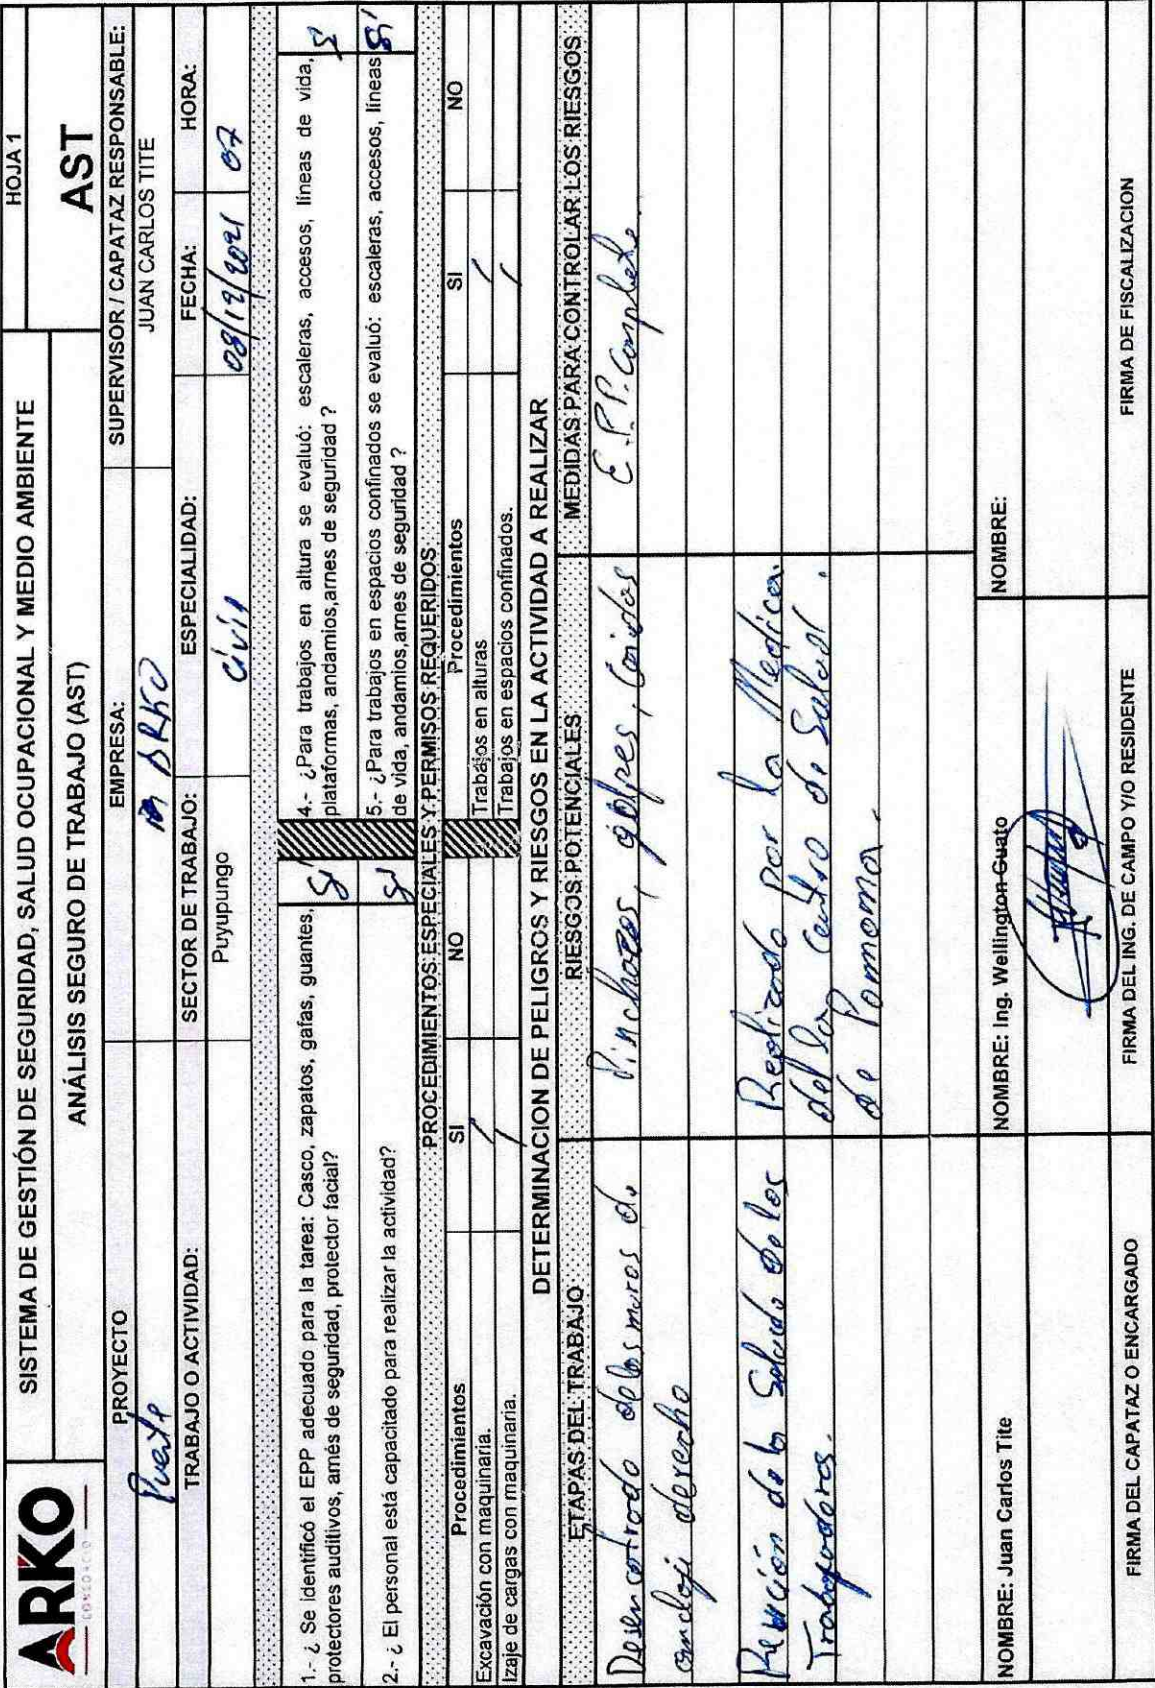 ARKO
CONSORCIO
SISTEMA DE GESTIÓN DE SEGURIDAD, SALUD OCUPACIONAL Y MEDIO AMBIENTE
HOJA 1
ANÁLISIS SEGURO DE TRABAJO (AST)
AST
PROYECTO
EMPRESA:
SUPERVISOR / CAPATAZ RESPONSABLE:
Puente
ARKO
JUAN CARLOS TITE
TRABAJO O ACTIVIDAD:
SECTOR DE TRABAJO:
ESPECIALIDAD:
FECHA:
HORA:
Puyupungo
civil
08/12/2021
07
1.- ¿ Se identificó el EPP adecuado para la tarea: Casco, zapatos, gafas, guantes,
protectores auditivos, arnés de seguridad, protector facial?
Si
4.- ¿Para trabajos en altura se evaluó: escaleras, accesos, líneas de vida,
plataformas, andamios,arnes de seguridad ?
Si
2.- ¿ El personal está capacitado para realizar la actividad?
Si
5.- ¿Para trabajos en espacios confinados se evaluó: escaleras, accesos, líneas
de vida, andamios,arnes de seguridad ?
Si
PROCEDIMIENTOS ESPECIALES Y PERMISOS REQUERIDOS
Procedimientos
SI
NO
Procedimientos
SI
NO
Excavación con maquinaria.
/
Trabajos en alturas
/
Izaje de cargas con maquinaria.
/
Trabajos en espacios confinados.
/
DETERMINACION DE PELIGROS Y RIESGOS EN LA ACTIVIDAD A REALIZAR
ETAPAS DEL TRABAJO
RIESGOS POTENCIALES
MEDIDAS PARA CONTROLAR LOS RIESGOS
Desencofrado de los muros de
Pinchazos, golpes, Caidas
E.P.P. Completo.
anclaje derecho
Revición de la Salud de los
Realizado por la Medica
Trabajadores.
del centro de Salud.
de Pomona.
NOMBRE: Juan Carlos Tite
NOMBRE: Ing. Wellington Guato
NOMBRE:
FIRMA DEL CAPATAZ O ENCARGADO
FIRMA DEL ING. DE CAMPO Y/O RESIDENTE
FIRMA DE FISCALIZACION